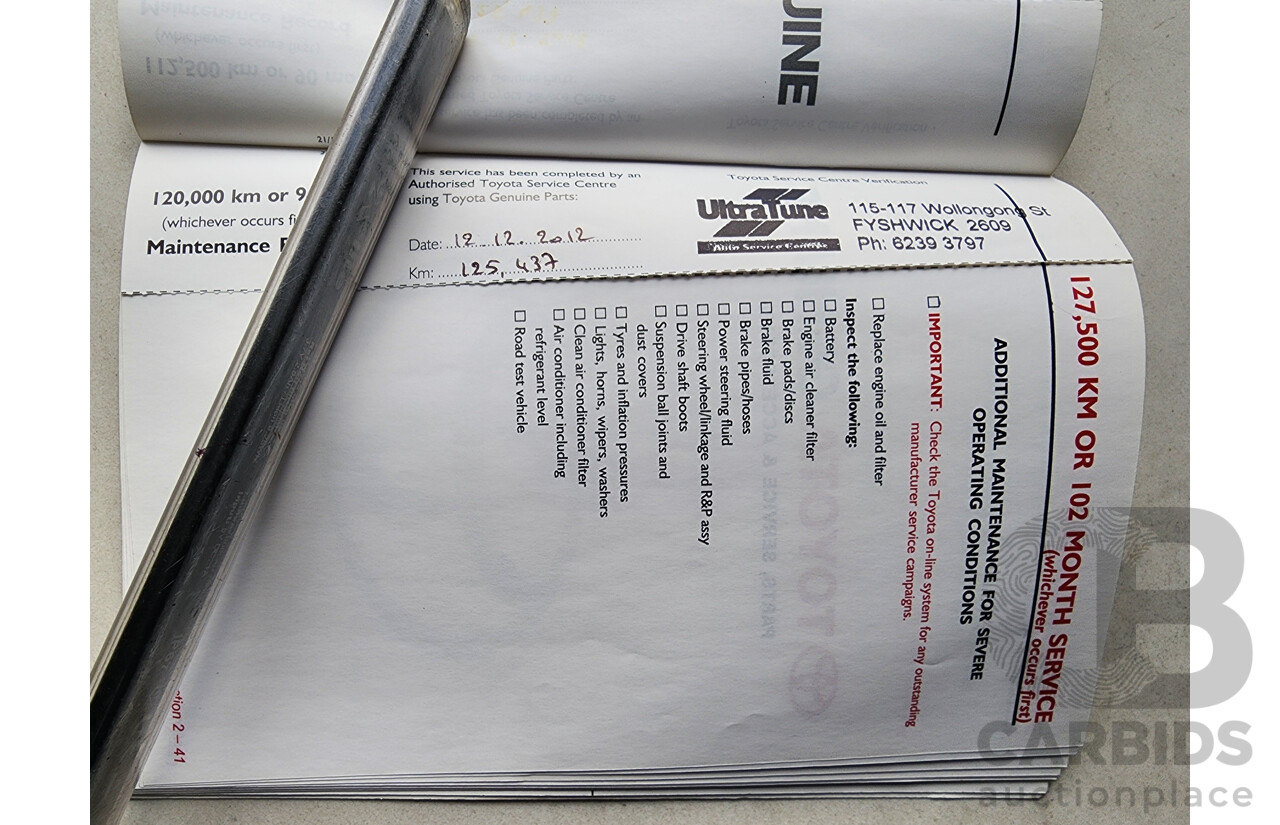 UINE
120,000 km or 9
(whichever occurs fi
Maintenance
This service has been completed by an
Authorised Toyota Service Centre
using Toyota Genuine Parts:
Date: 12.12.2012
Km: 125,437
Toyota Service Centre Verification
UltraTune
Auto Service Centres
115-117 Wollongong St
FYSHWICK 2609
Ph: 6239 3797
127,500 KM OR 102 MONTH SERVICE
(whichever occurs first)
ADDITIONAL MAINTENANCE FOR SEVERE
OPERATING CONDITIONS
☐ IMPORTANT: Check the Toyota on-line system for any outstanding
manufacturer service campaigns.
☐ Replace engine oil and filter
Inspect the following:
☐ Battery
☐ Engine air cleaner filter
☐ Brake pads/discs
☐ Brake fluid
☐ Brake pipes/hoses
☐ Power steering fluid
☐ Steering wheel/linkage and R&P assy
☐ Drive shaft boots
☐ Suspension ball joints and
dust covers
☐ Tyres and inflation pressures
☐ Lights, horns, wipers, washers
☐ Clean air conditioner filter
☐ Air conditioner including
refrigerant level
☐ Road test vehicle
tion 2 – 41
CARBIDS
auctionplace